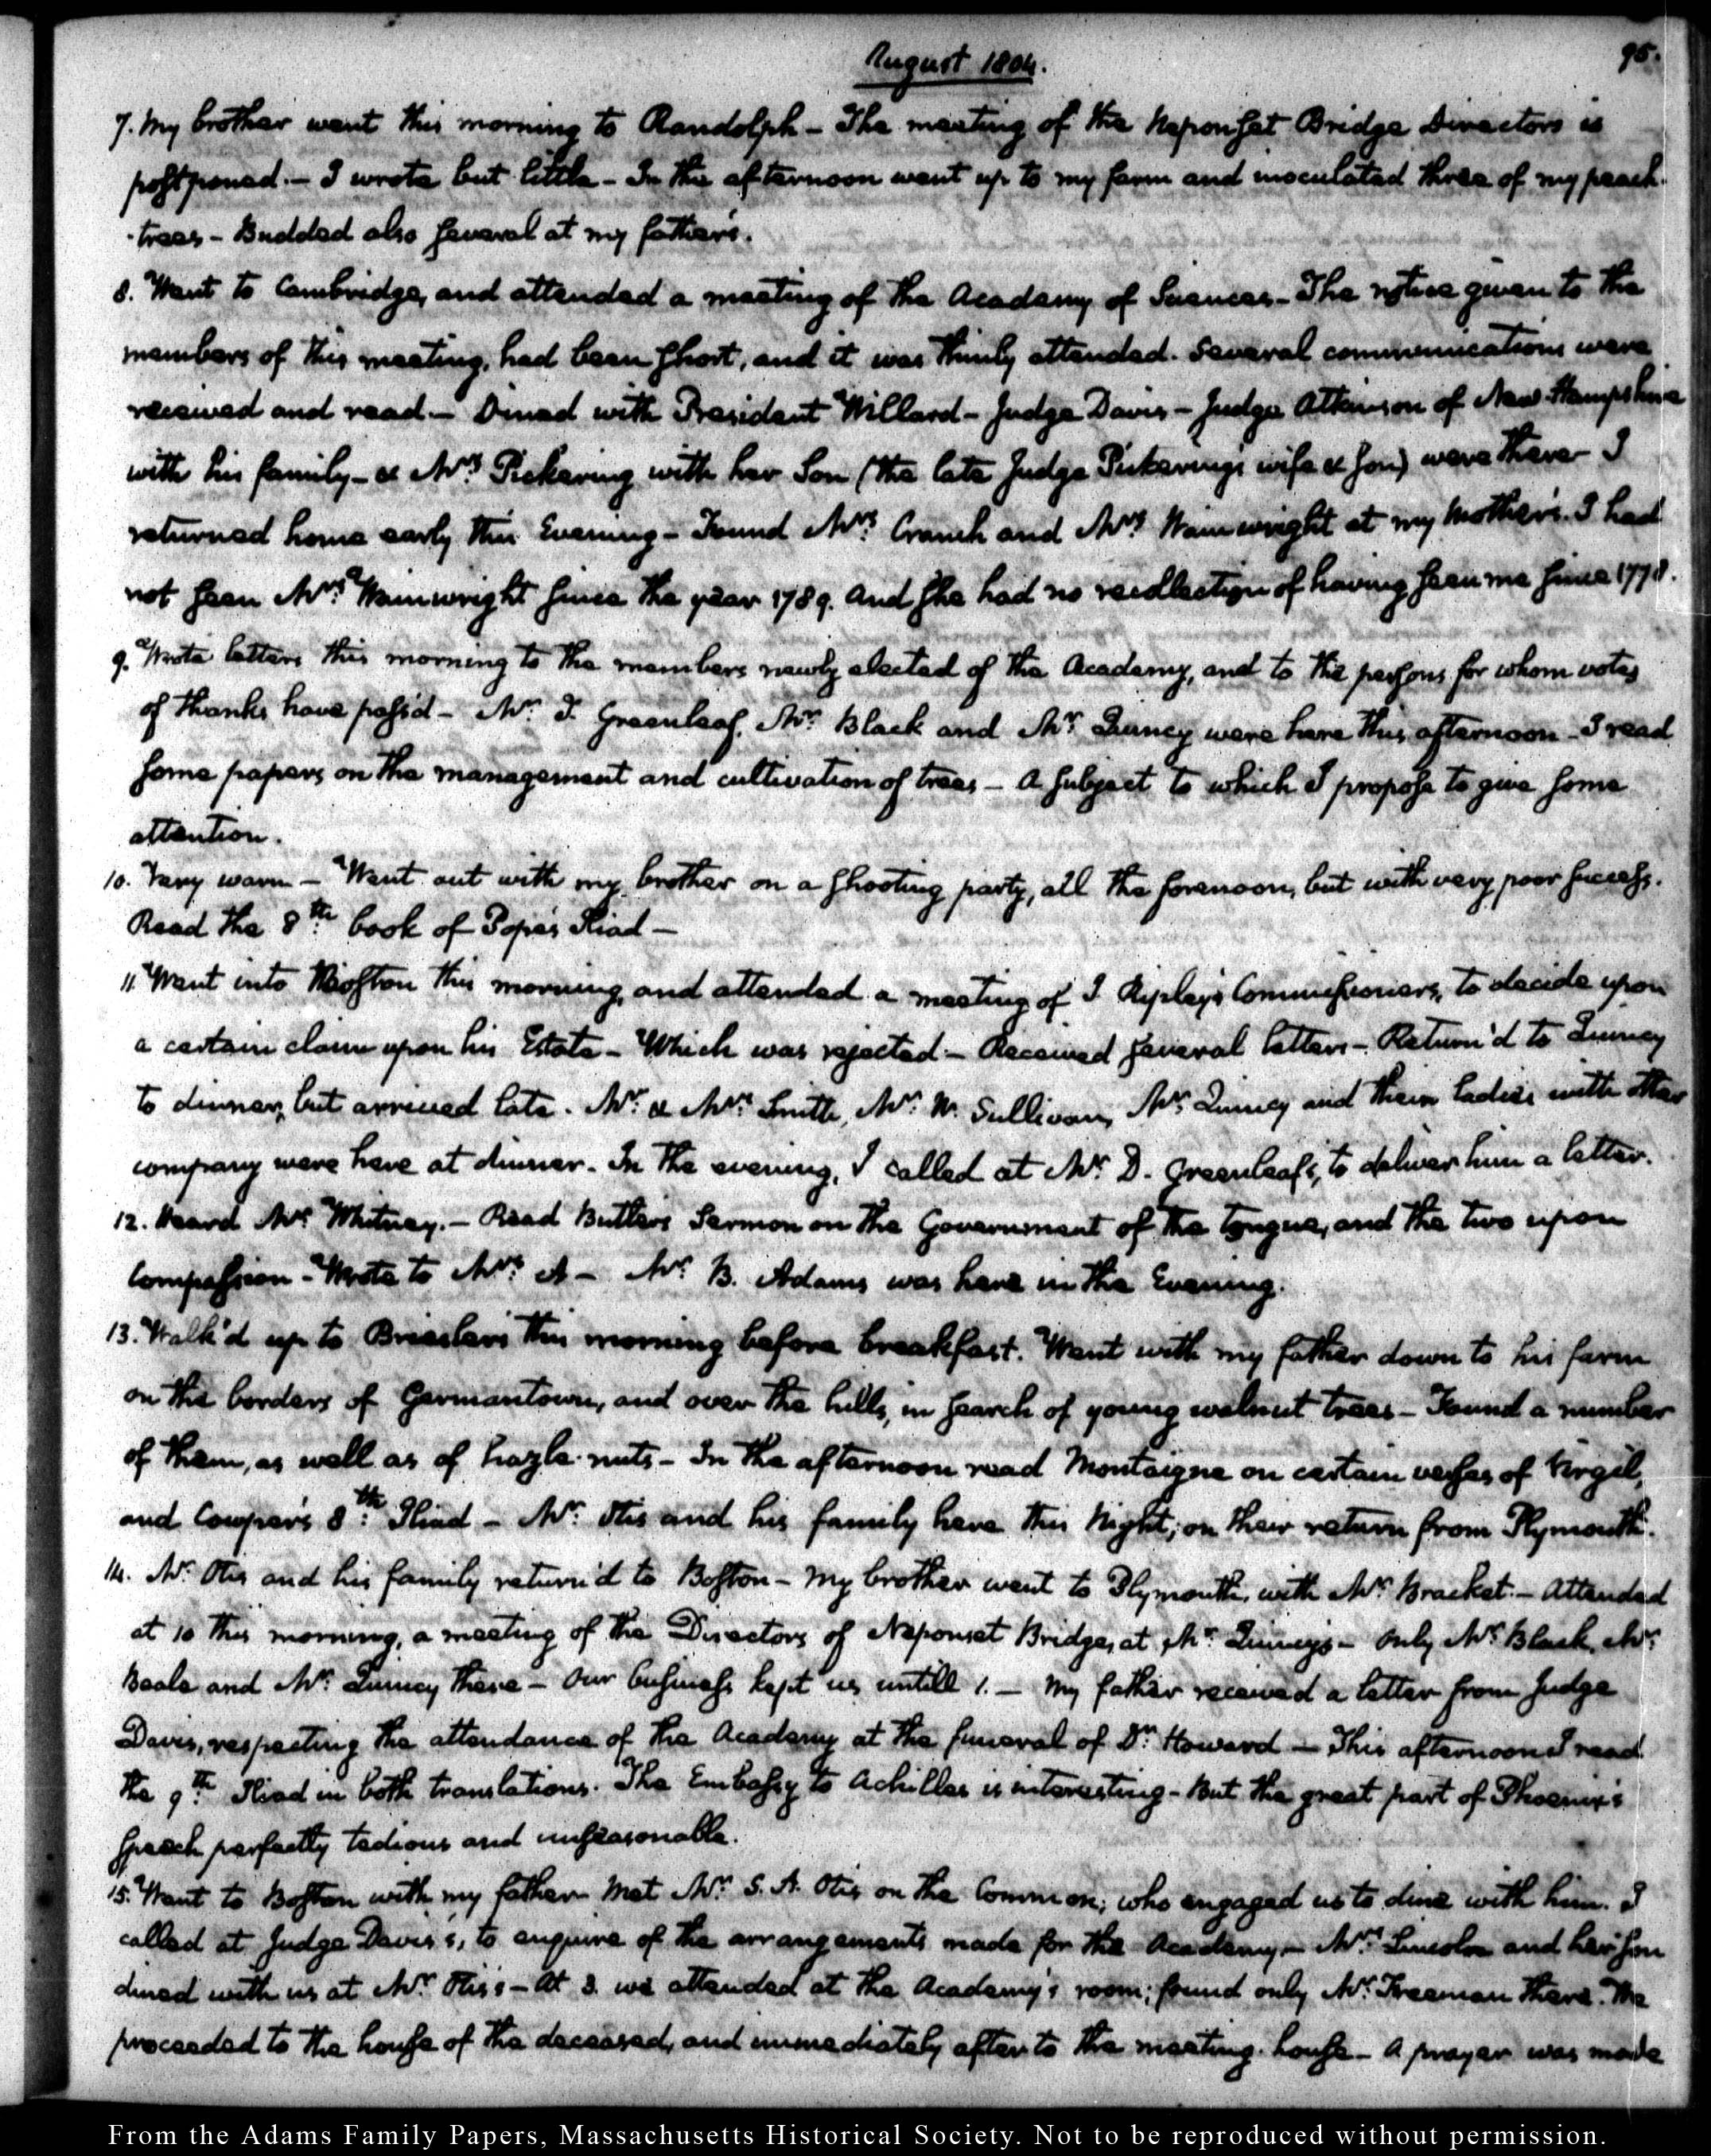 August 1804.
95.
7. My brother went this morning to Randolph - The meeting of the Neponset Bridge Directors is
postponed. - I wrote but little - In the afternoon went up to my farm and inoculated three of my peach-
-trees - Budded also several at my father's.
8. Went to Cambridge, and attended a meeting of the Academy of Sciences - The notice given to the
members of this meeting, had been short, and it was thinly attended. Several communications were
received and read - Dined with President Willard - Judge Davis - Judge Atkinson of New-Hampshire
with his family - & Mrs. Pickering with her Son (the late Judge Pickering's wife & son) were there - I
returned home early this Evening - Found Mrs. Cranch and Mrs. Wainwright at my Mother's. I had
not seen Mrs. Wainwright since the year 1789. And she had no recollection of having seen me since 1778.
9. Wrote letters this morning to the members newly elected of the Academy, and to the persons for whom votes
of thanks have pass'd - Mr. T. Greenleaf, Mr. Black and Mr. Quincy were here this afternoon - I read
some papers on the management and cultivation of trees - A subject to which I propose to give some
attention.
10. Very warm - Went out with my brother on a shooting party, all the forenoon, but with very poor success.
Read the 8th. book of Pope's Iliad -
11. Went into Boston this morning, and attended a meeting of J. Ripley's Commissioners, to decide upon
a certain claim upon his Estate - Which was rejected - Received several letters - Return'd to Quincy
to dinner, but arrived late. Mr. & Mrs. Smith, Mr. W. Sullivan, Mr. Quincy and their ladies with other
company were here at dinner. In the evening, I called at Mr. D. Greenleaf's, to deliver him a letter.
12. Heard Mr. Whitney. - Read Butler's Sermon on the Government of the tongue, and the two upon
Compassion - Wrote to Mrs. A - Mr. B. Adams was here in the Evening.
13. Walk'd up to Briesler's this morning before breakfast. Went with my father down to his farm
on the borders of Germantown, and over the hills, in search of young walnut trees - Found a number
of them, as well as of hazle-nuts - In the afternoon read Montaigne on certain verses of Virgil,
and Cowper's 8th. Iliad - Mr. Otis and his family here this Night; on their return from Plymouth.
14. Mr. Otis and his family return'd to Boston - My brother went to Plymouth, with Mr. Bracket - Attended
at 10 this morning, a meeting of the Directors of Neponset Bridge, at Mr. Quincy's - Only Mr. Black, Mr.
Beale and Mr. Quincy there - Our business kept us untill 1. - My father received a letter from Judge
Davis, respecting the attendance of the Academy at the funeral of Dr. Howard - This afternoon I read
the 9th. Iliad in both translations. The Embassy to Achilles is interesting - But the great part of Phoenix's
speech perfectly tedious and unseasonable.
15. Went to Boston with my father. Met Mr. S. A. Otis on the Common; who engaged us to dine with him. I
called at Judge Davis's, to enquire of the arrangements made for the Academy - Mrs. Lincoln and her son
dined with us at Mr. Otis's - At 3. we attended at the Academy's room; found only Mr. Freeman there. We
proceeded to the house of the deceased, and immediately after to the meeting-house - A prayer was made
From the Adams Family Papers, Massachusetts Historical Society. Not to be reproduced without permission.